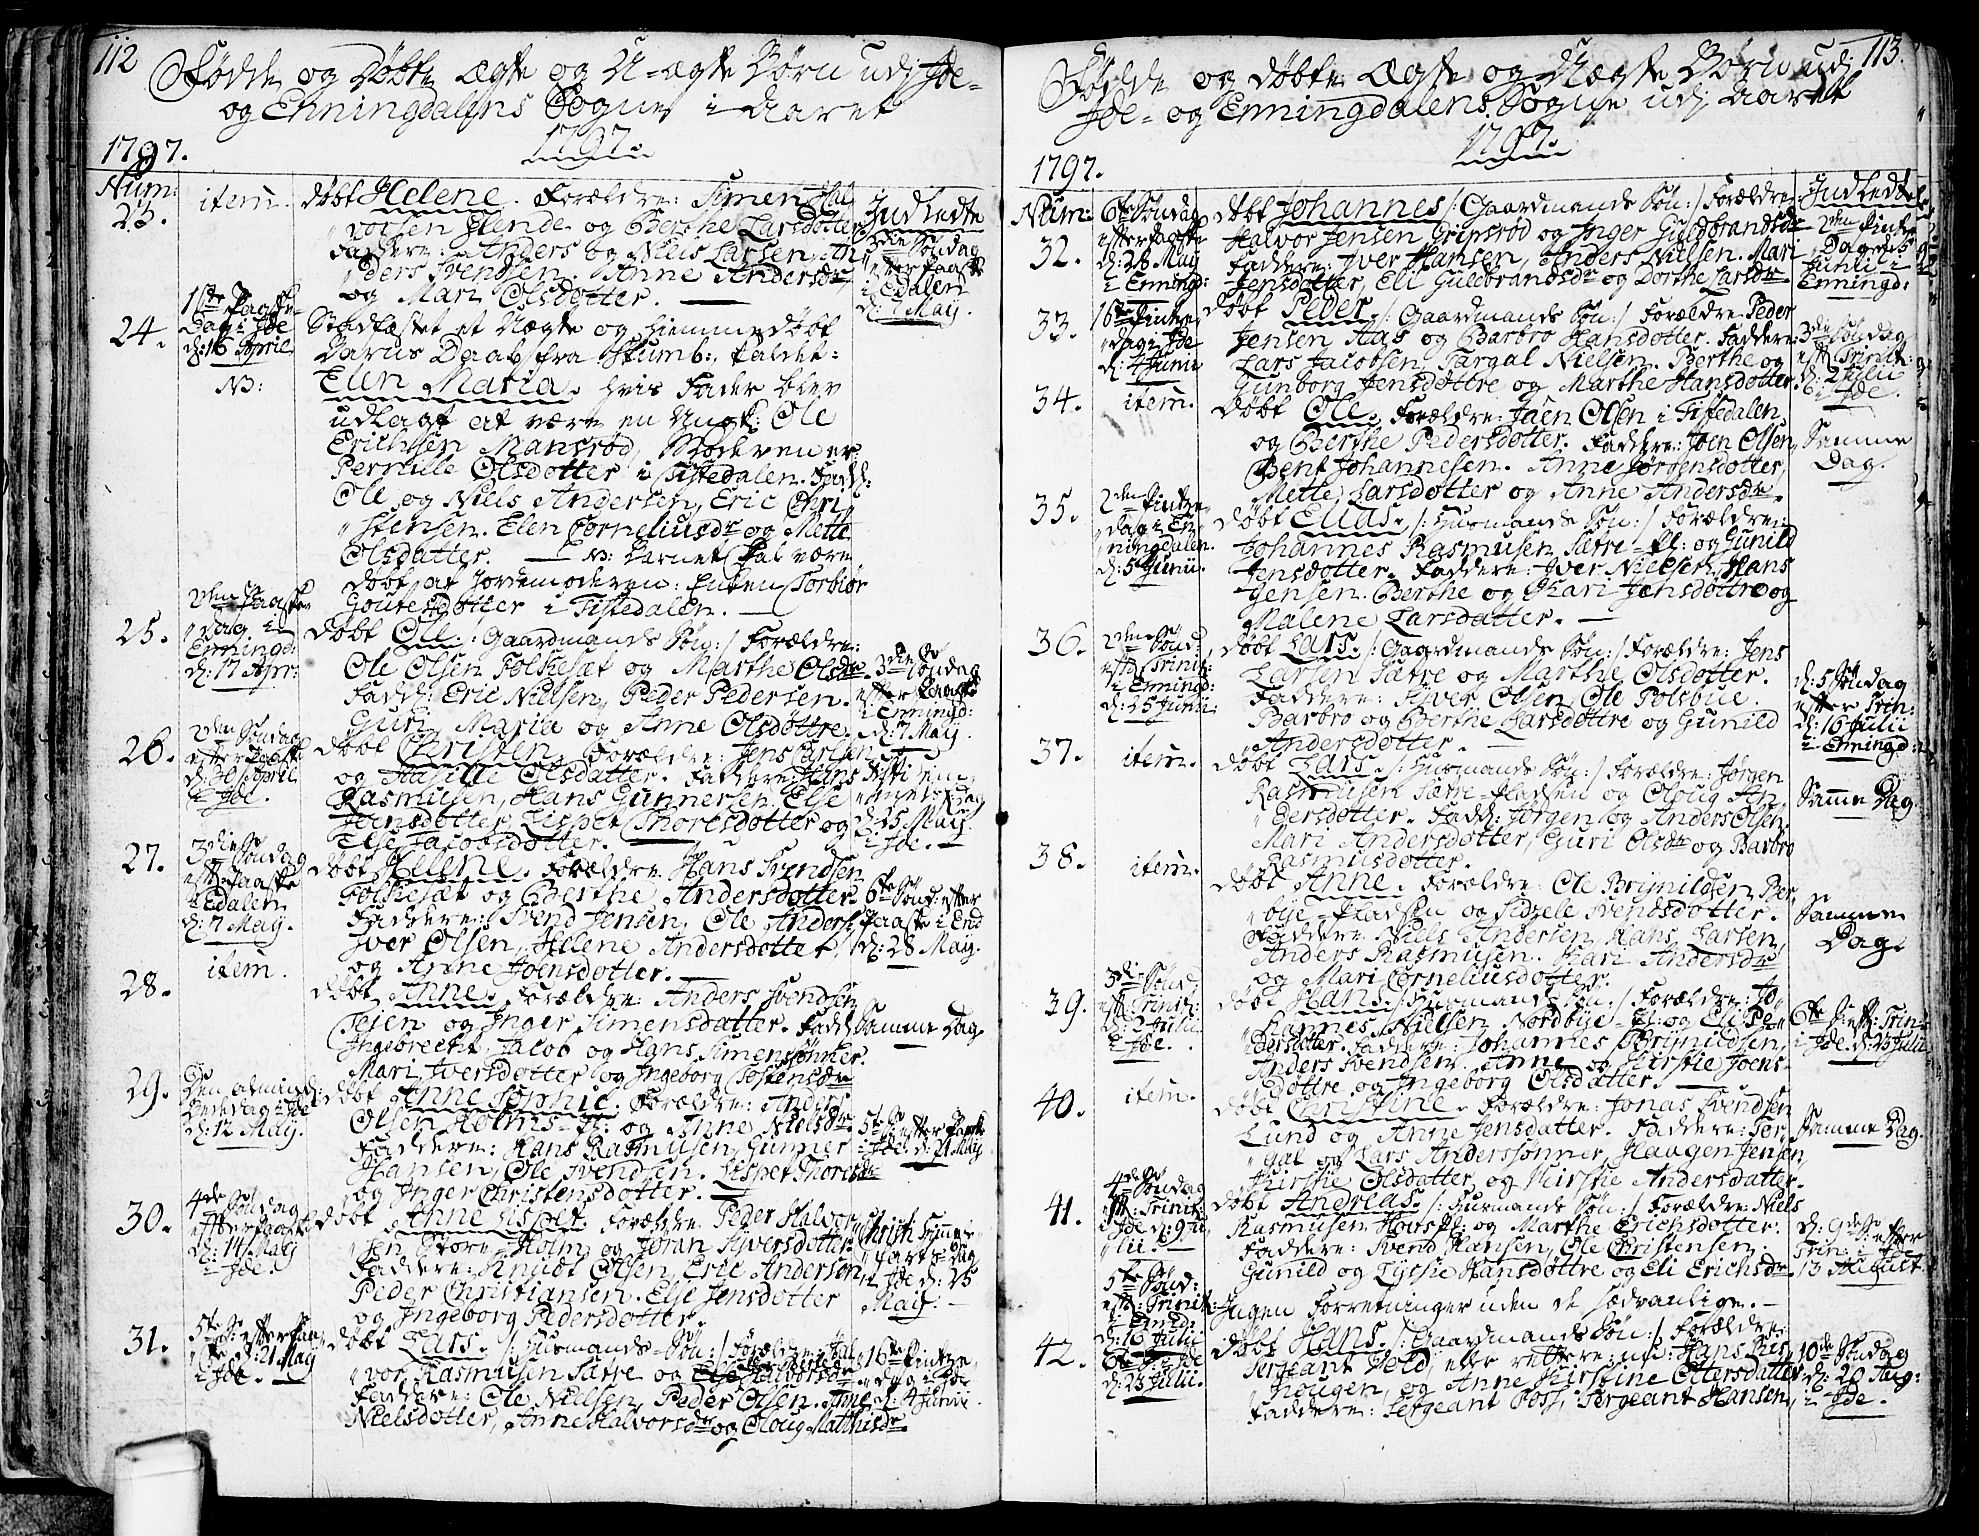 112
Fødde og Døbte Ægte og U-ægte Børn udj Ide-
og Enningdalens Sogne i Aaret
1797.
1797.
Num:
23.
item.
døbt Helene. Forældre: Simen Hal-
vorsen Hende og Berthe Larsdotter
Faddere: Anders og Niels Larsen, An-
ders Svendsen. Anne Andersdr
og Mari Olsdotter.
Indledte
3die Søndag
efter Paaske
i Edalen
d: 7 Maij.
24.
1ste Paaske-
Dag i Ide
d: 16 April
NB:
Stadfæstet et Uægte og hiemmedøbt
Barns Daab fra Skumb: kaldet:
Elen Maria. hvis Fader blev
udlagt at være en Ungk: Ole
Erichsen Mansrød, Moderen er
Pernille Olsdotter i Tistedalen. Fadd:
Ole og Niels Andersen, Eric Chri-
stensen. Elen Corneliusdr og Mette
Olsdatter. NB: Barnet skal være
døbt af Jordemoderen: Enken Torbiør
Goutesdotter i Tistedalen.
25.
2den Paaske
Dag i
Enningd:
d: 17 Apr:
døbt Ole. /: Gaardmands Søn: / Forældre:
Ole Olsen Folkesæt og Marthe Olsdr.
Fadd: Eric Nielsen, Peder Pedersen.
Guri Maria og Anne Olsdøttre.
3die Søndag
efter Paaske
i Enningd:
d: 7 Maij.
26.
2den Søndag
efter Paaske
d: 30 April
i Ide.
døbt Christen. Forældre: Jens Carlsen
og Aasille Olsdatter. Faddere: Hans
Rasmusen, Hans Gunnersen. Else
Joensdotter, Lispet Thoresdotter og
Else Jacobsdotter.
Dag
d: 25 Maij
i Ide.
27.
3die Søndag
eft: Paaske
i Edalen
d: 7 Maij.
døbt Helene. Forældre: Hans Svendsen
Folkesæt og Berthe Andersdotter.
Faddere: Svend Jensen, Ole Anders:
Iver Olsen, Helene Andersdotter,
og Anne Joensdotter.
6te Sønd: efter
Paaske i End
d: 28 Maij.
28.
item.
døbt Anne. Forældre: Anders Svendsen
Tejen og Inger Simensdatter. Fadd:
Ingebrecht, Jacob og Hans Simenssønner.
Mari Iversdotter og Ingeborg Tostensdr
Samme Dag.
29.
Den almind:
Bededag i Ide
d: 12 Maij.
døbt Anne Sophie. Forældre: Anders
Olsen Holms-pl: og Anne Nielsdr
Faddere: Hans Rasmusen, Gunner
Hansen, Ole Svendsen. Lispet Thoresdr
og Inger Christensdotter.
5te S: efter Paaske
i Ide: d: 21 Maij
30.
4de Søndag
efter Paaske
d: 14 Maij
i Ide.
døbt Anne Lispet. Forældre Peder Halvor-
sen Store-Holm og Jøran Sijversdotter.
Faddere: Knudt Olsen, Eric Andersen
Peder Christiansen. Else Jensdotter
og Ingeborg Pedersdotter.
Christi Himmel-
farts-Dag
i Ide d: 25
Maij.
31.
5te S: efter Paa-
ske d: 21 Maij
i Ide.
døbt Lars. /: Husmands-Søn: / Forældre: Hal-
vor Rasmusen Sætre og Else Halvorsdr
Faddere: Ole Nielsen, Peder Olsen. Anne
Nielsdotter, Anne Halvorsdr og Oloug Mathisdr.
1ste Pintze-
dag i Ide
d: 4 Junii.
113.
Fødde og døbte Ægte og Uægte Børn udj
Ide- og Enningdalens Sogne udj Aaret
1797.
1797.
Num:
32.
6te Søndag
efter Paaske
d: 28 Maij
i Enningd:
døbt Johannes /: Gaardmands Søn: / Forældre:
Halvor Jensen Gripsrød og Inger Guldbrandsdr
Faddere: Iver Hansen, Anders Nielsen. Mari
Jensdotter, Eli Guldbrandsdr og Dorthe Larsdr
Indledte
2den Pintze
Dag d: 5
Junii i
Enningd:
33.
1ste Pintze-
dag i Ide
d: 4 Junii
døbt Peder. /: Gaardmands Søn: / Forældre: Peder
Jensen Aas og Barbro Hansdotter. Faddere:
Lars Jacobsen, Targal Nielsen. Berthe og
Gunborg Jensdøttre og Marthe Hansdotter.
3die Søndag
eft: Trinit:
d: 2 Julii
i Ide.
34.
item.
døbt Ole. Forældre: Joen Olsen i Tistedalen,
og Berthe Pedersdotter. Faddere: Joen Olsen,
Bent Johannesen. Anne Jørgensdotter,
Mette Larsdotter og Anne Andersdr.
Samme
Dag.
35.
2den Pintze-
dag i En-
ningdalen.
d: 5 Junii.
døbt Elias. /: Husmands Søn: / Forældre:
Johannes Rasmusen Sætre-pl: og Gunild
Jensdotter. Faddere: Iver Nielsen, Hans
Jensen. Berthe og Kari Jensdøttre og
Malene Larsdatter.
36.
2den Sønd:
eft: Trinit:
i Enningd:
d: 25 Junii
døbt Lars. /: Gaardmands Søn: / Forældre: Jens
Larsen Sætre og Marthe Olsdotter.
Faddere: Siver Olsen, Ole Polsbue.
Barbro og Berthe Larsdøttre og Gunild
Andersdotter.
d: 5 Søndag
efter Trin:
d: 16 Julii
i Enningd:
37.
item.
døbt Lars. /: Husmands Søn: / Forældre: Jørgen
Rasmusen Sætre-Pladsen og Oloug An-
dersdotter. Fadd: Jørgen og Anders Olsen.
Mari Andersdotter, Guri Olsdr og Barbro
Rasmusdotter.
Samme Dag.
38.
item.
døbt Anne. Forældre: Ole Brynildsen Ber-
bye-Pladsen og Sidsele Svendsdotter.
Faddere: Niels Andersen, Hans Larsen,
Anders Rasmusen. Kari Andersdr
og Mari Corneliusdotter.
Samme
Dag.
39.
3die Sønd:
eft: Trinit:
d: 2 Julii
i Ide.
døbt Hans. /: Husmands Søn. / Forældre: Jo-
hannes Nielsen Nordbye-Pl: og Eli Pe-
dersdotter. Faddere: Johannes Brynildsen,
Anders Svendsen. Anne og Kirstie Joens-
døttre og Ingeborg Olsdatter.
6te S: eft: Trin:
i Ide. d: 23 Julii
40.
item.
døbt Christine. Forældre: Jonas Svendsen
Lund og Anne Jensdatter. Faddere: Tor-
gal og Lars Anderssønner, Haagen Jensen,
Kirstie Olsdatter, og Kirstie Andersdatter.
Samme Dag.
41.
4de Søndag
eft: Trinit:
i Ide d: 9 Ju-
lii.
døbt Andreas. /: Husmands Søn: / Forældre: Niels
Rasmusen Hovs Pl: og Marthe Erichsdotter.
Faddere: Svend Hansen, Ole Christensen.
Gunild og Lytsie Hansdøttre og Eli Erichsdr
d: 9de S: efter
Trin: i Ide
13 August.
5te Sønd:
eft: Trinit:
i Ennd:
d: 16 Julii
Ingen Forretninger uden de sædvanlige.
42.
6te S: i Ide
d: 23 Julii.
døbt Hans. /: Gaardmands Søn: / Forældre
Sergeant Veld, eller rettere: nu: Hans Ris-
hougen, og Anne Kirstine Ottersdatter
Faddere: Sergeant Poss, Sergeant Hansen,
10de Søndag
d: 20 Aug:
i Ide.